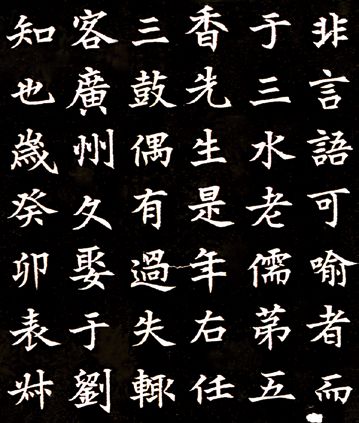 非言語可喻者而
于三水老儒苐五
香先生是年右任
三鼓偶有過失輙
客廣州久娶于劉
知也歲癸卯表叔